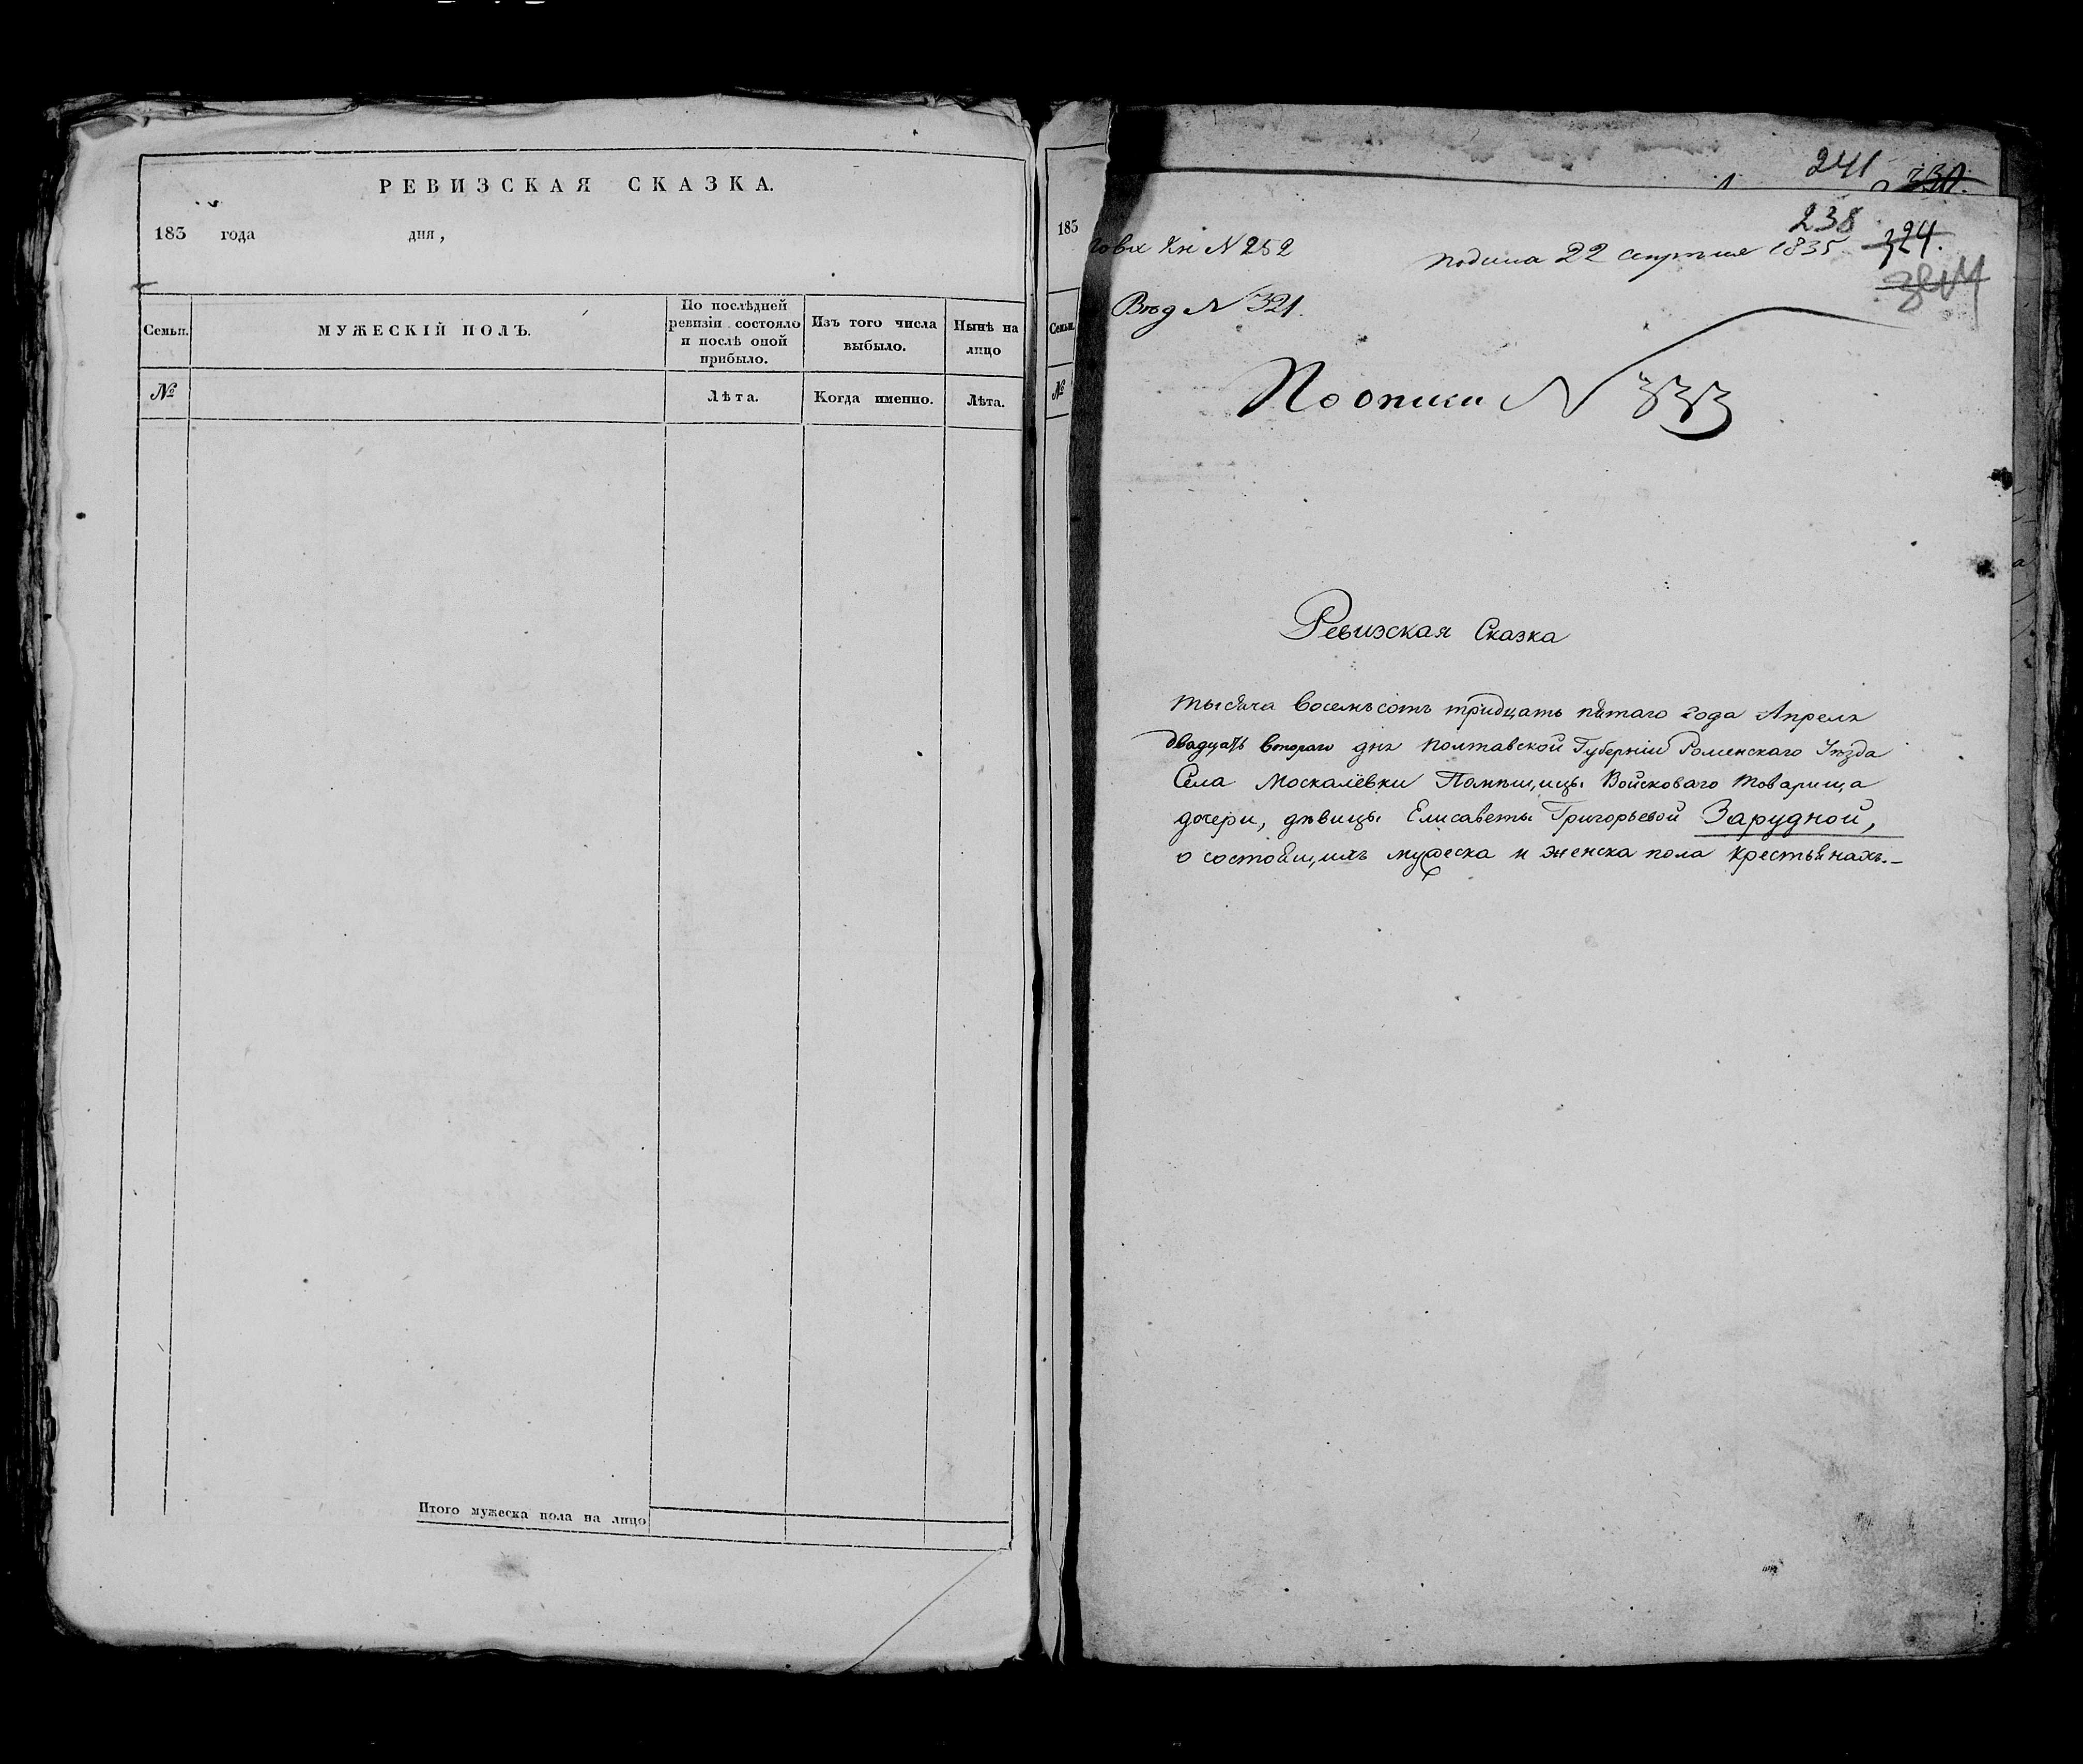 РЕВИЗСКАЯ СКАЗКА.
183 года дня,
Семьи.
МУЖЕСКІЙ ПОЛЪ.
По послѣдней
ревизіи состояло
и послѣ оной
прибыло.
Изъ того числа
выбыло.
Нынѣ на
лицо
№
Лѣта.
Когда именно.
Лѣта.
Итого мужеска пола на лицо
183
Семьи.
№
241
238
324.
Кн N 252
22 1835
Вѣд N 321.
По описи N 333
Ревизская Сказка
тысяча восемьсотъ тридцать пятаго года Апреля
двадцать втораго дня Полтавской Губерніи Роменскаго Уѣзда
Села Москалёвки Помѣщицы Войсковаго товарища
дочери, дѣвицы Елисаветы Григорьевой Зарудной,
о состоящихъ мужеска и женска пола крестьянахъ.-